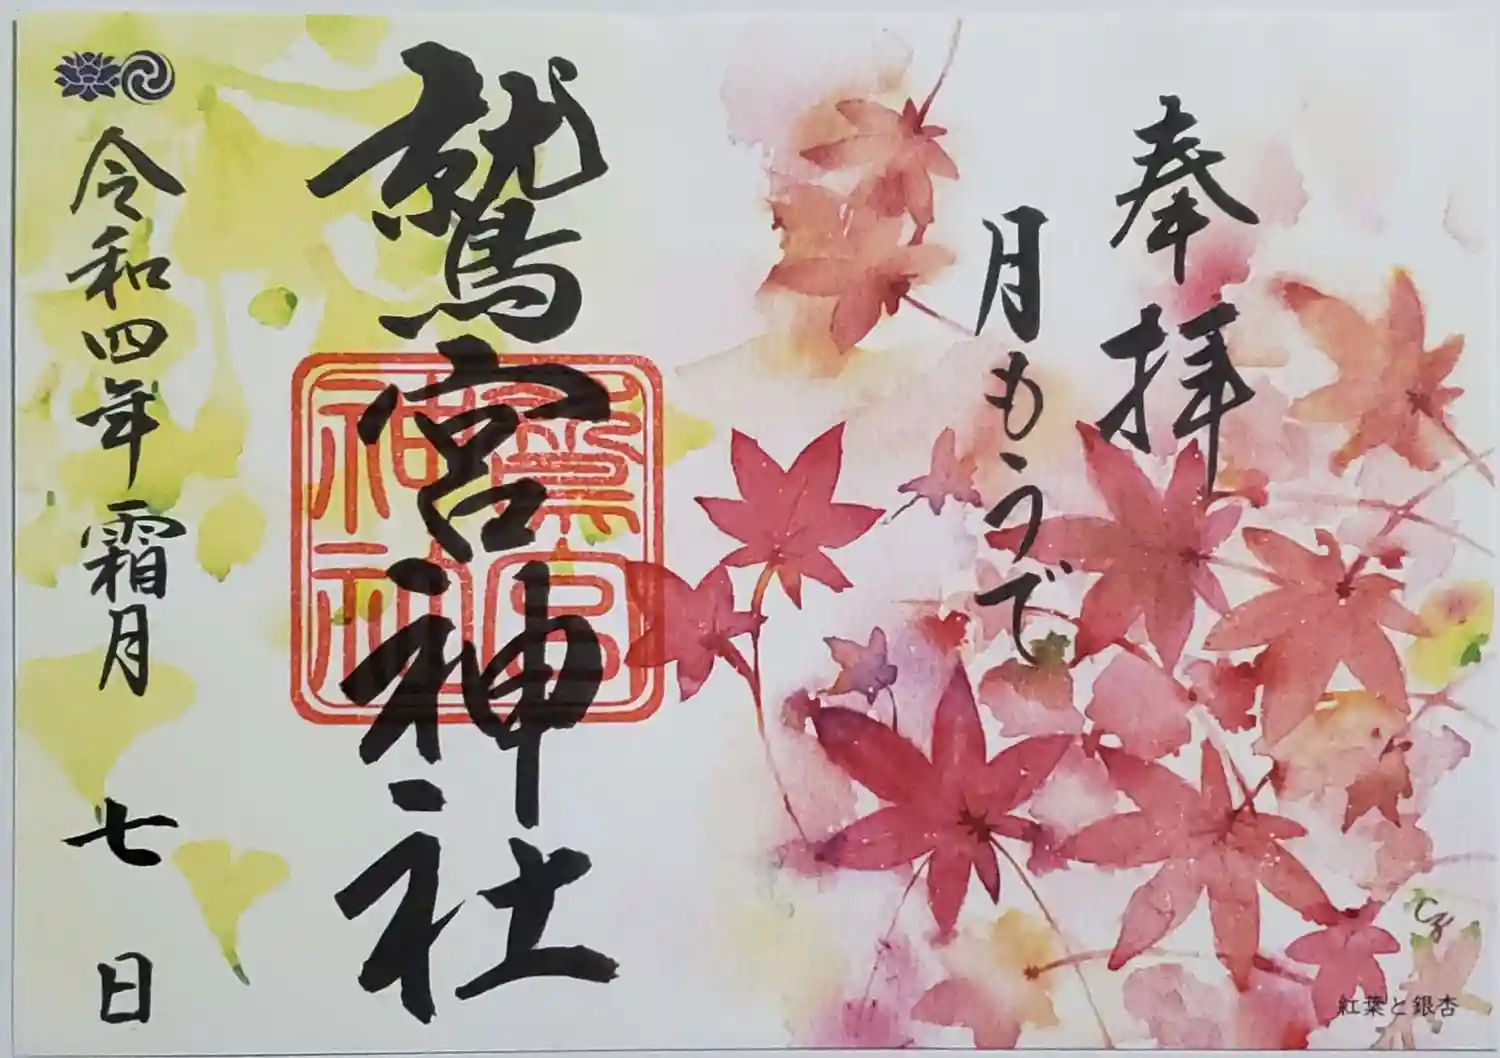 奉拝
月もうで
鷲宮神社
鷲宮
神社
令和四年霜月七日
紅葉と銀杏